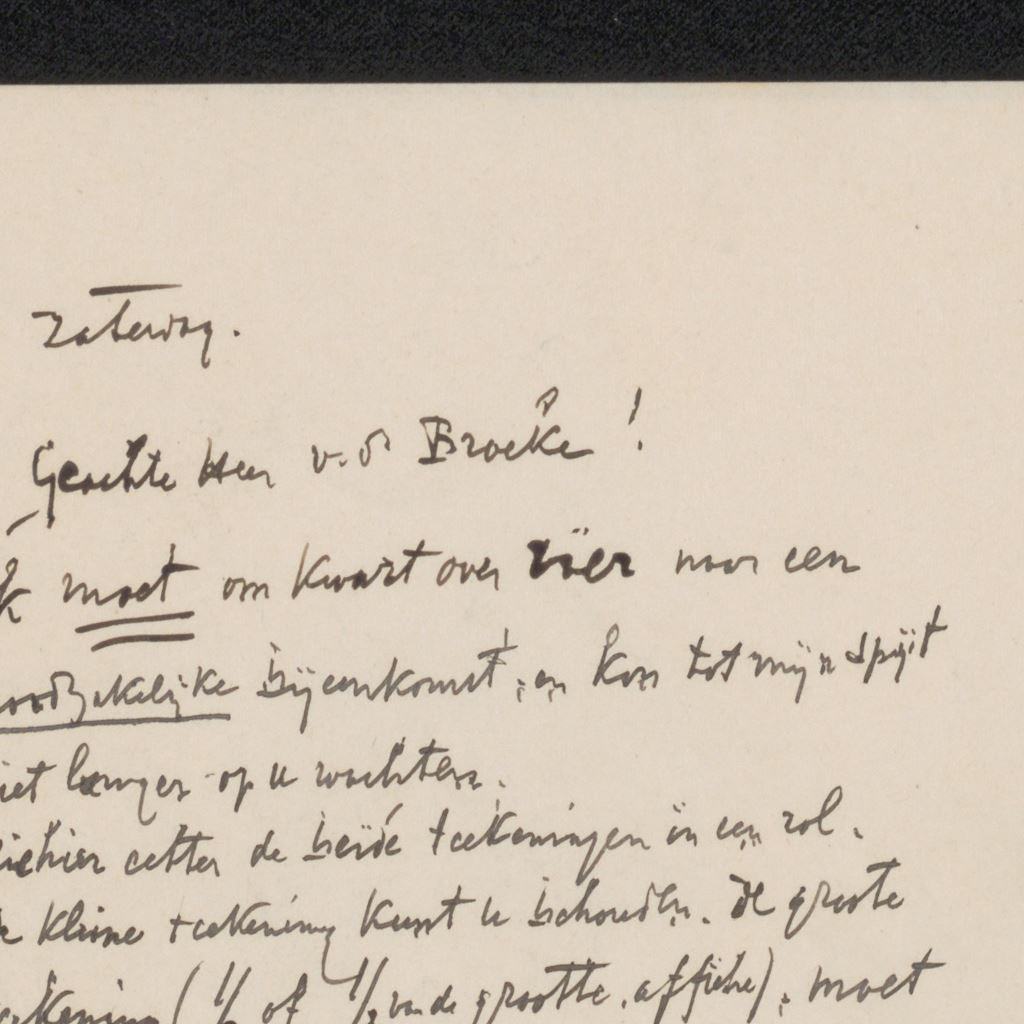 Zaterdag.
Geachte Heer v.d Broeke!
Ik moet om Kwart over vier naar een
noodzakelijke bijeenkomst, en kon tot mijn spijt
niet langer op u wachten.
Ziehier echter de beide teekeningen in een rol.
De kleine teekening kunt u behouden. De groote
teekening (1/ of 1/ van de grootte, affiche), moet